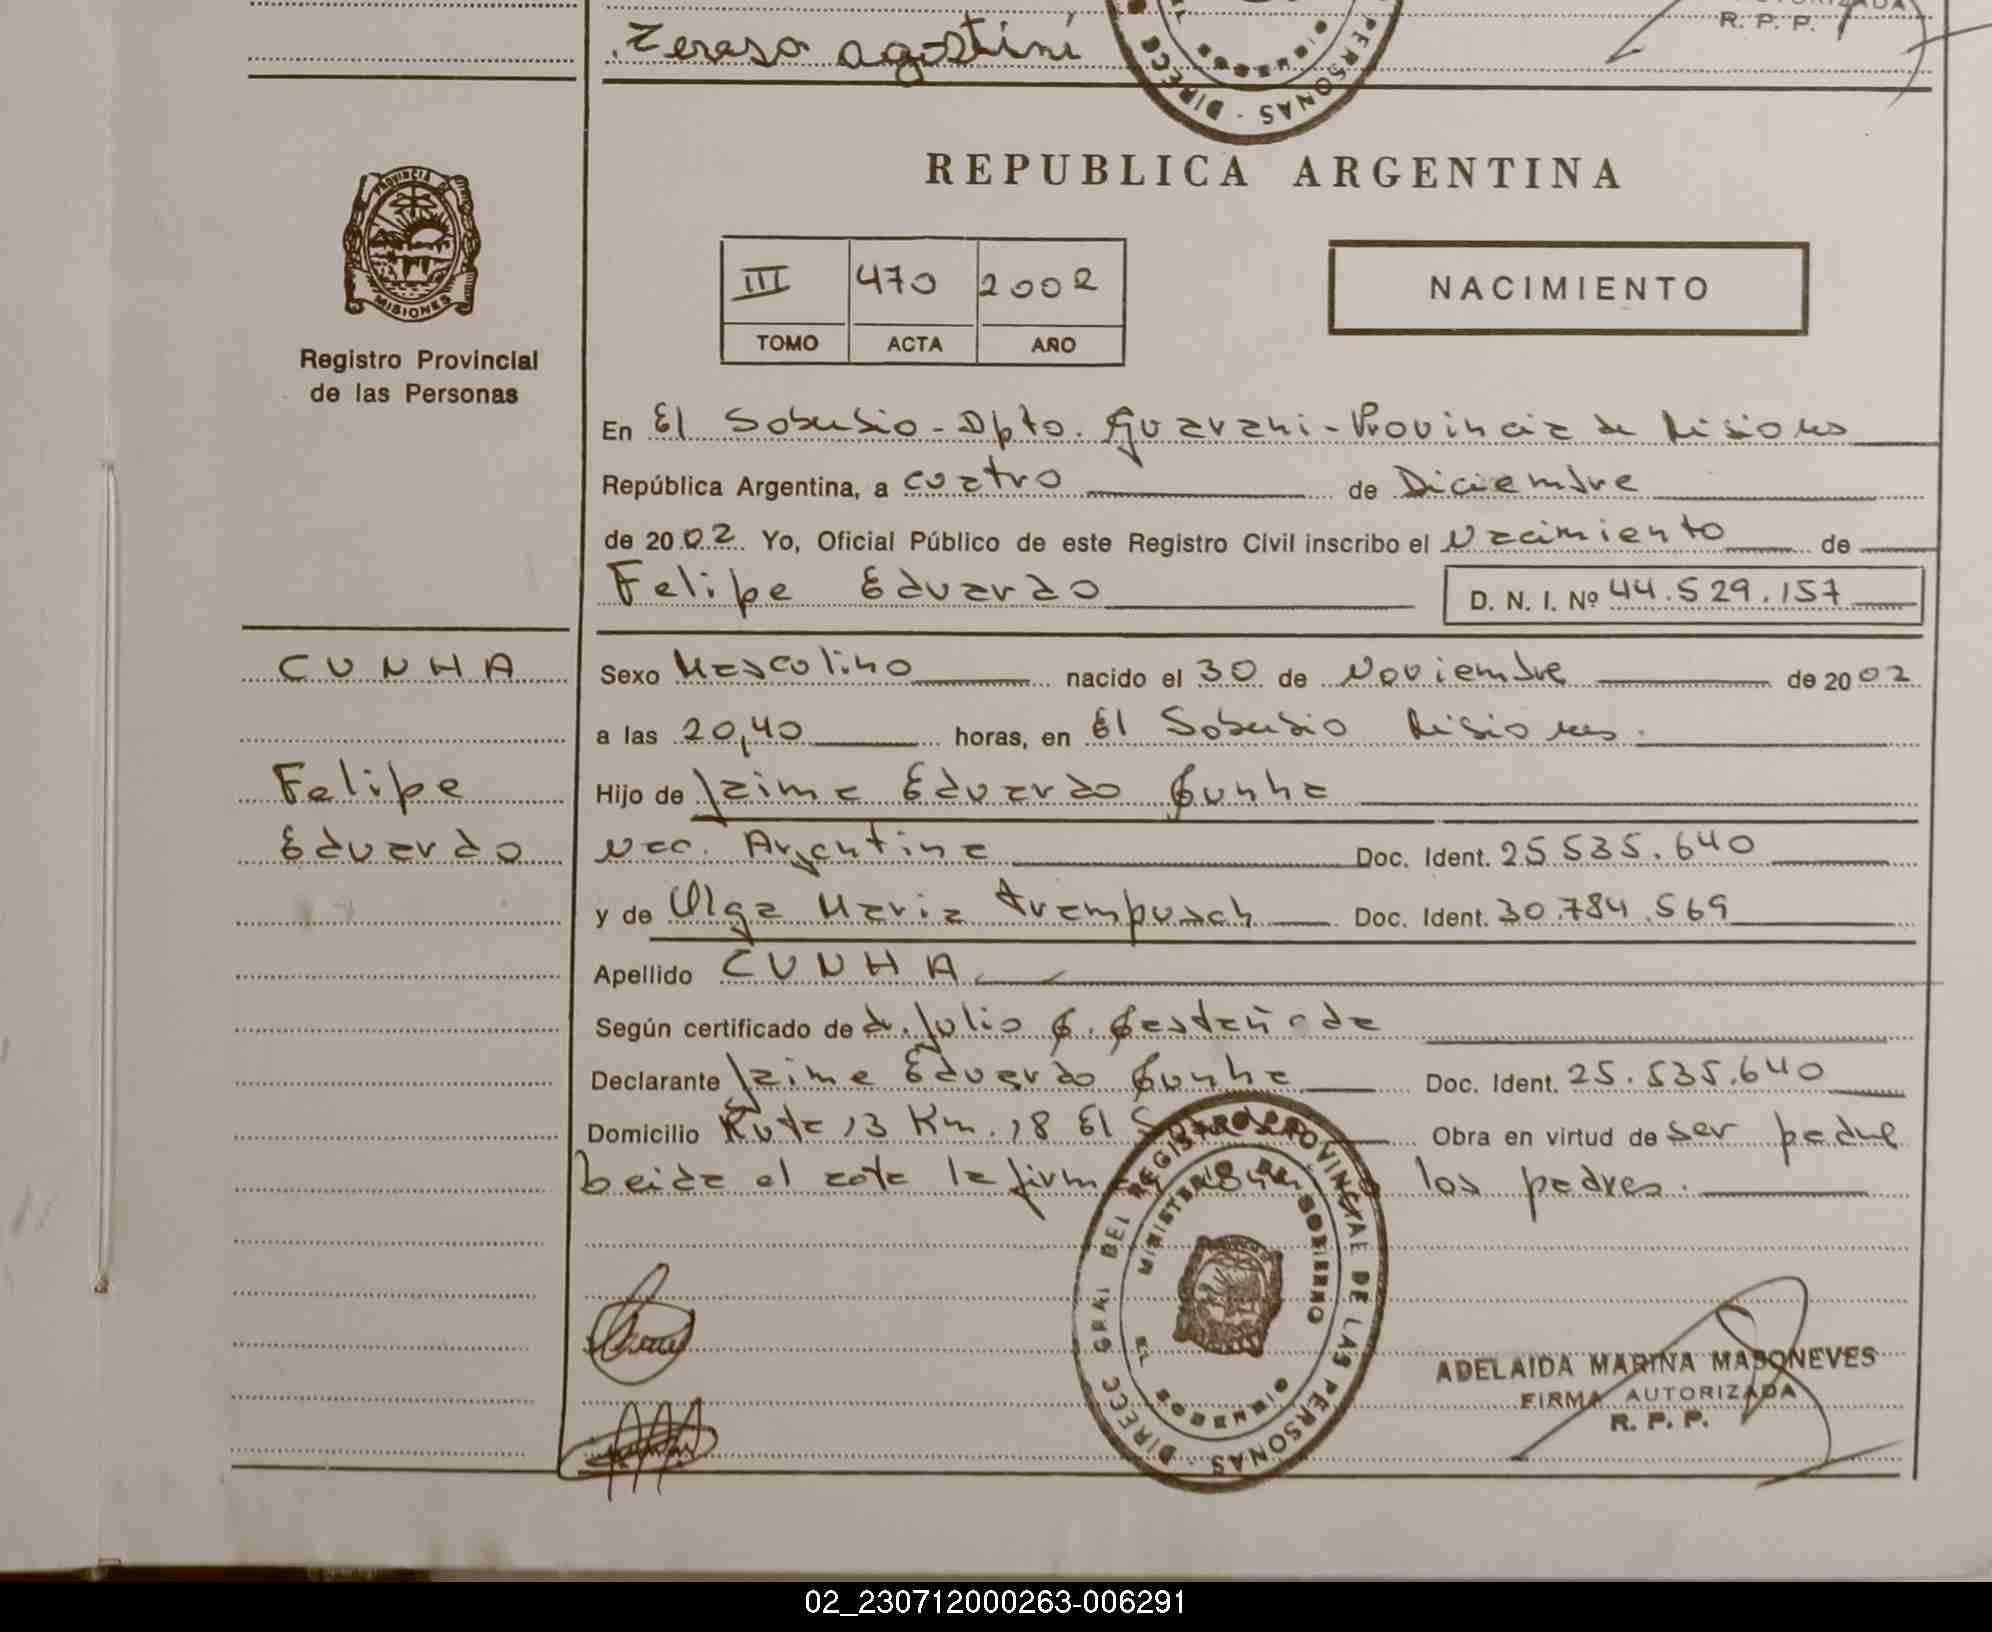 Teresa agostini
R. P. P.
REPUBLICA ARGENTINA
PROVINCIA DE
MISIONES
Registro Provincial
de las Personas
III 470 2002
TOMO ACTA AÑO
NACIMIENTO
En El Soberbio - Dpto. Guarani - Provincia de Misiones
República Argentina, a cuatro de Diciembre
de 2002 Yo, Oficial Público de este Registro Civil inscribo el Nacimiento de
Felipe Eduardo D. N. I. Nº 44.529.157
CUNHA
Felipe
Eduardo
Sexo Masculino nacido el 30 de Noviembre de 2002
a las 20,40 horas, en El Soberbio Misiones.
Hijo de Jaime Eduardo Cunha
Nac. Argentina Doc. Ident. 25 535.640
y de Olga Maria Trampusch Doc. Ident. 30.784.569
Apellido CUNHA
Según certificado de d. Julio C. Castañada
Declarante Jaime Eduardo Cunha Doc. Ident. 25.535.640
Domicilio Ruta 13 Km. 18 El Obra en virtud de ser padre
Leida el acta la los padres.
DIRECC GRAL DEL REGISTRO PROVINCIAL DE LAS PERSONAS
MINISTERIO DE GOBIERNO
MISIONES
ADELAIDA MARINA MASONEVES
FIRMA AUTORIZADA
R. P. P.
02_230712000263-006291